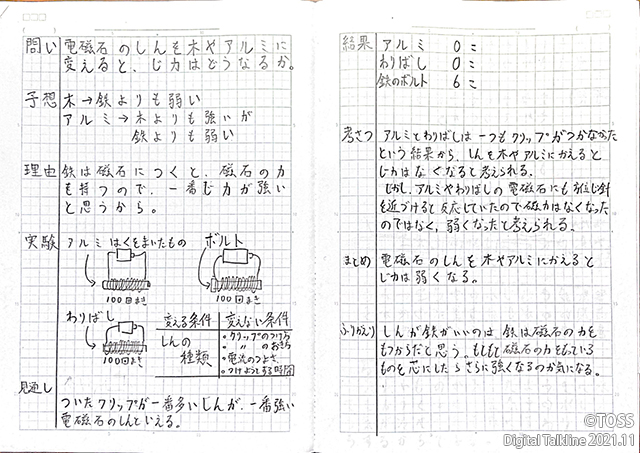 問い 電磁石のしんを木やアルミに
変えると、じ力はどうなるか。
予想 木→鉄よりも弱い
アルミ→木よりも強いが
鉄よりも弱い
理由 鉄は磁石につくと、磁石の力
を持つので、一番じ力が強い
と思うから。
実験 アルミはくをまいたもの ボルト
100回まき 100回まき
わりばし
100回まき
変える条件 変えない条件
しんの
種類
・クリップのつけ方
・〃のおき方
・電流のつよさ
・つけようとする時間
見通し
ついたクリップが一番多いしんが、一番強い
電磁石のしんといえる。
結果 アルミ 0こ
わりばし 0こ
鉄のボルト 6こ
考さつ アルミとわりばしは一つもクリップがつかなかった
という結果から、しんを木やアルミにかえると
じ力はなくなると考えられる。
しかし、アルミやわりばしの電磁石にも方位じ針
を近づけると反応していたので磁力はなくなった
のではなく、弱くなったと考えられる。
まとめ 電磁石のしんを木やアルミにかえると
じ力は弱くなる。
ふりかえり しんが鉄がいいのは鉄は磁石の力を
もつからだと思う。もしも磁石の力をもっている
ものを芯にしたらさらに強くなるのか気になる。
©TOSS
Digital Talkline 2021.11